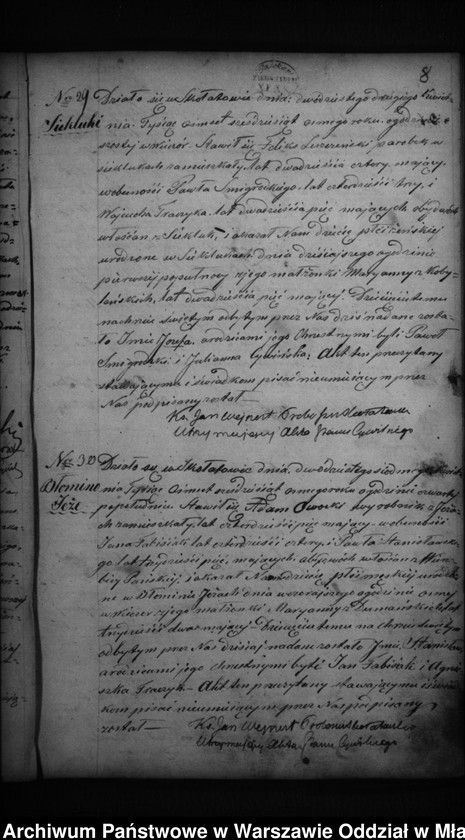 8
No 29 Działo się w Skołatowie dnia: dwudziestego drugiego Kwiet-
Siekluki nia Tysiąc ośmset sześdziąt osmego roku, o godzinie
szostej wieczor. Stawił się Felix parobek w
Sieklukach zamieszkały, lat dwadzieścia cztery mający,
w obecności Pawła Smigrodzkiego, lat czterdzieści trzy, i
Wojciecha Fraczyka, lat dwadzieścia pięć mających obydwóch
włościan z Siekluk, i okazał Nam dziecię płci żeńskiej
urodzone w Sieklukach dnia dzisiejszego o godzinie
pierwszej po północy z jego małżonki Maryanny z Koby-
lańskich, lat dwadzieścia pięć mającej. Dziecięciu temu
na chrzcie świętym odbytym przez Nas dziś nadane zosta-
ło Imie Józefa, a rodzicami jego Chrzestnymi byli Paweł
Smigrodzki i Julianna Akt ten przeczytany
stawającymu i świadkom pisać nieumiejącym przez
Nas podpisany został —
Ks. Jan Wejnert Proboszcz Skołatowski
Utrzymujący Akta Stanu Cywilnego
No 30 Działo się w Skołatowie dnia, dwudziestego siodmego Kwiet-
Dłomino nia Tysiąc ośmset sześdziąt osmego roku o godzinie czwartej
Jeże po południu Stawił się Adam wyrobnik z Jeż-
ach zamieszkały, lat czterdzieści pięć mający w obecności
Jana Fabisiak lat czterdzieści cztery, i Pawła Stanisławsk-
iego lat trzydzieści pięć, mających obydwóch włościan z
i okazał Nam dziecię płci męskiej urodzo-
ne w dnia wczorajszego o godzinie osmy
wieczor z jego małżonki Maryanny z lat
trzydzieści dwa mającej — Dziecięciu temu na chrzcie świętym
odbytym przez Nas dzisiaj nadane zostało Imie, Stanisław
a rodzicami jego chrzestnymi byli Jan Fabisiak i Agnie-
szka Fraczyk — Akt ten przeczytany stawającymu i świad-
kom pisać nieumiejącym przez Nas podpisany
został — Ks. Jan Wejnert Proboszcz Skołatowski
Utrzymujący Akta Stanu Cywilnego
Archiwum Państwowe w Warszawie Oddział w Mła